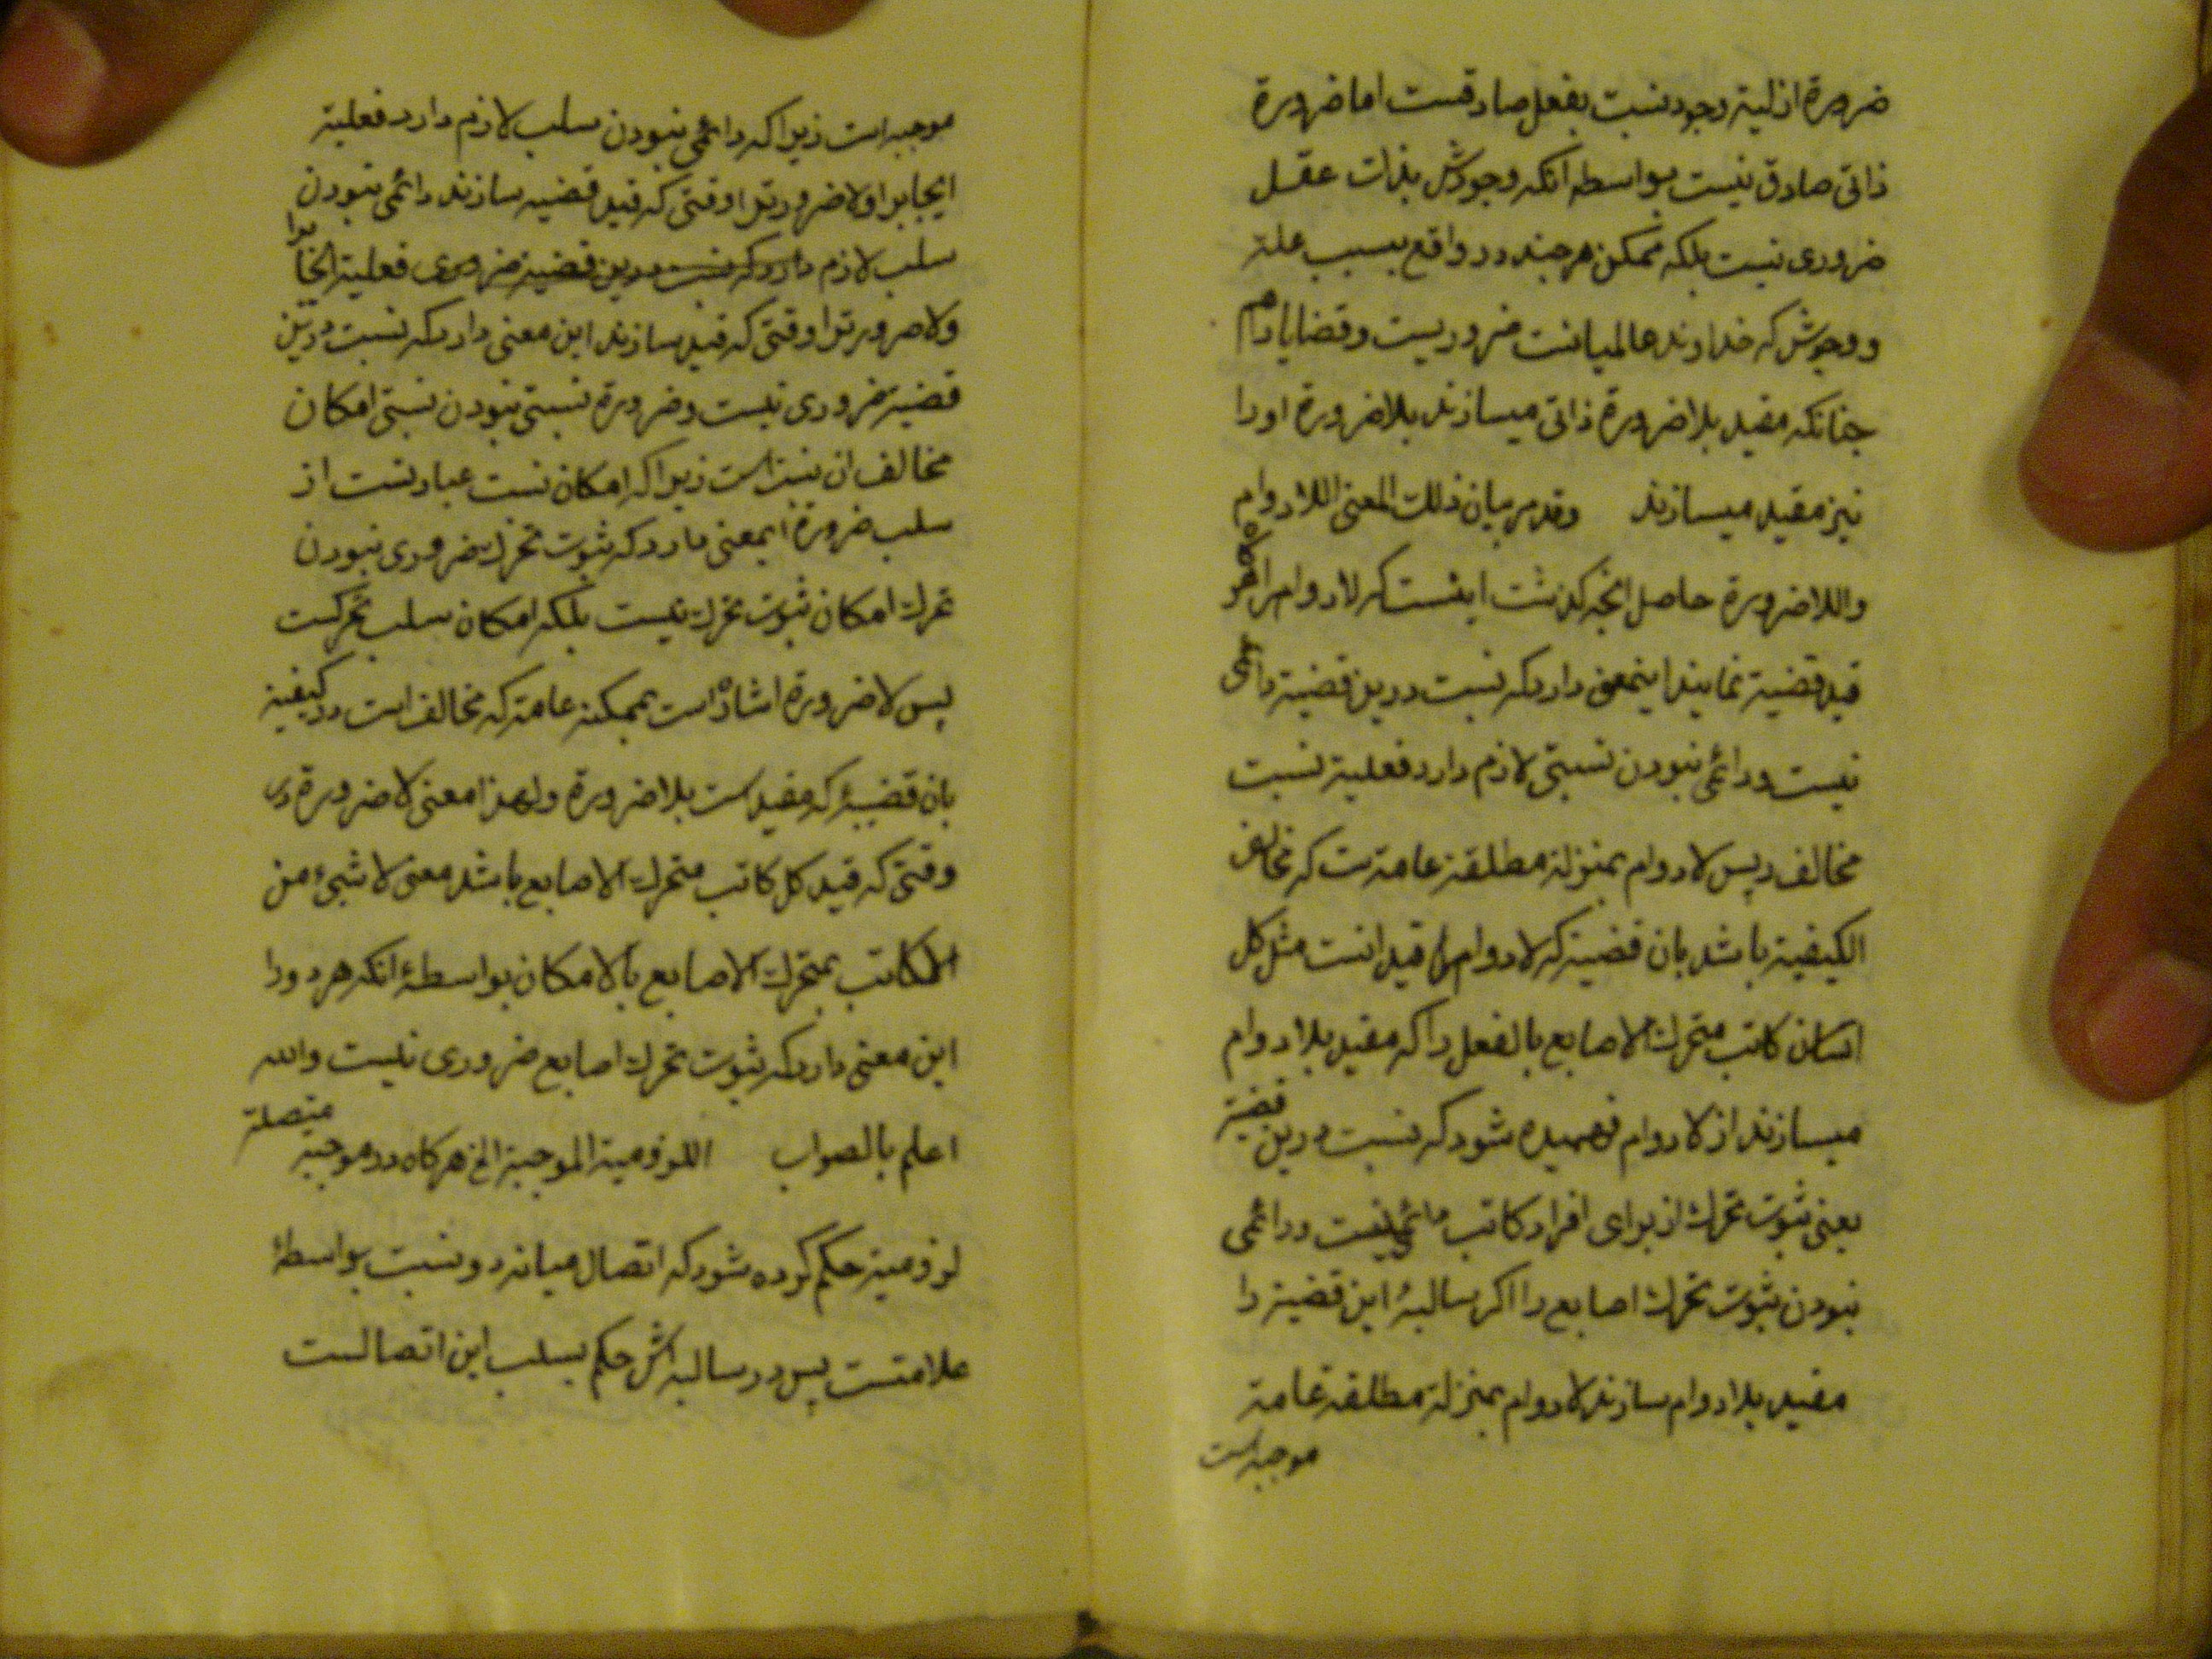 ضرورة ازلیة وجود نسبت بفعل صادقست اما ضرورة
ذاتی صادق نیست بواسطه انکه وجودش بذات عقل
ضروری نیست بلکه ممکن هر چند در واقع بسبب علة
و وجودش که خداوند عالمیانست ضروریست و قضایا را هم
چنانکه مقید بلا ضرورة ذاتی میسازند بلا ضرورة او را
نیز مقید میسازند وقد مر بیان ذلك المعنی اللادوام
واللاضرورة حاصل انچه کذشت اینست که لادوام را هرکاه
قید قضیة نمایند اینمعنی دارد که نسبت درین قضیة دائمی
نیست و دائمی نبودن نسبتی لازم دارد فعلیة نسبت
مخالف و پس لادوام بمنزلة مطلقة عامة ست که مخالف
الکیفیة باشد بان قضیة که لادوام قید انست مثل کل
انسان کاتب متحرك الاصابع بالفعل را که مقید بلادوام
میسازند از لادوام فهمیده شود که نسبت درین قضیة
یعنی ثبوت تحرك از برای افراد کاتب دائمی نیست و دائمی
نبودن ثبوت تحرك اصابع را اکر سالبۀ این قضیة را
مقید بلادوام سازند لادوام بمنزلة مطلقة عامة
موجبه است
موجبه است زیرا که دائمی نبودن سلب لازم دارد فعلیة
ایجاب را و لاضرورة را وقتی که قید قضیه سازند دائمی نبودن
سلب لازم دارد که نسبت درین قضیة ضروری فعلیة ایجاب را
و لاضرورة را وقتی که قید سازند این معنی دارد که نسبت درین
قضیة ضروری نیست و ضرورة نسبتی نبودن نسبتی امکان
مخالف ان نسبت است زیرا که امکان نسبت عبارتست از
سلب ضرورة اینمعنی دارد که ثبوت تحرك ضروری نبودن
تحرك امکان ثبوت تحرك نیست بلکه امکان سلب تحرکست
پس لاضرورة اشاره است بممکنه عامة که مخالف است در کیفیة
بان قضیۀ که مقید است بلاضرورة و لهذا معنی لاضرورة در
وقتی که قید کل کاتب متحرك الاصابع باشد معنی لاشیء من
الکاتب بمتحرك الاصابع بالامکان بواسطۀ انکه هر دو را
این معنی دارد که ثبوت تحرك اصابع ضروری نیست والله
اعلم بالصواب اللزومیة الموجبة الخ هرکاه در موجبة متصلة
لزومیة حکم کرده شود که اتصال میانه دو نسبت بواسطۀ
علاقتست پس در سالبه اش حکم بسلب این اتصالست